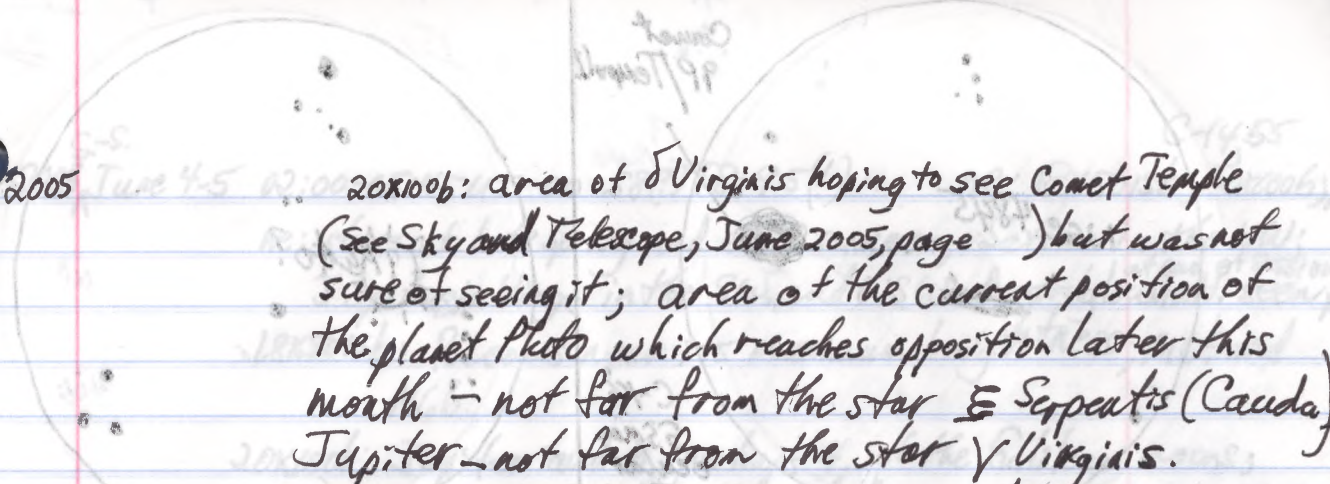 2005 20x100b: area of δ Virginis hoping to see Comet Temple
(see Sky and Telescope, June 2005, page ) but was not
sure of seeing it; area of the current position of
the planet Pluto which reaches opposition later this
month – not far from the star ξ Serpentis (Cauda)
Jupiter – not far from the star γ Virginis.